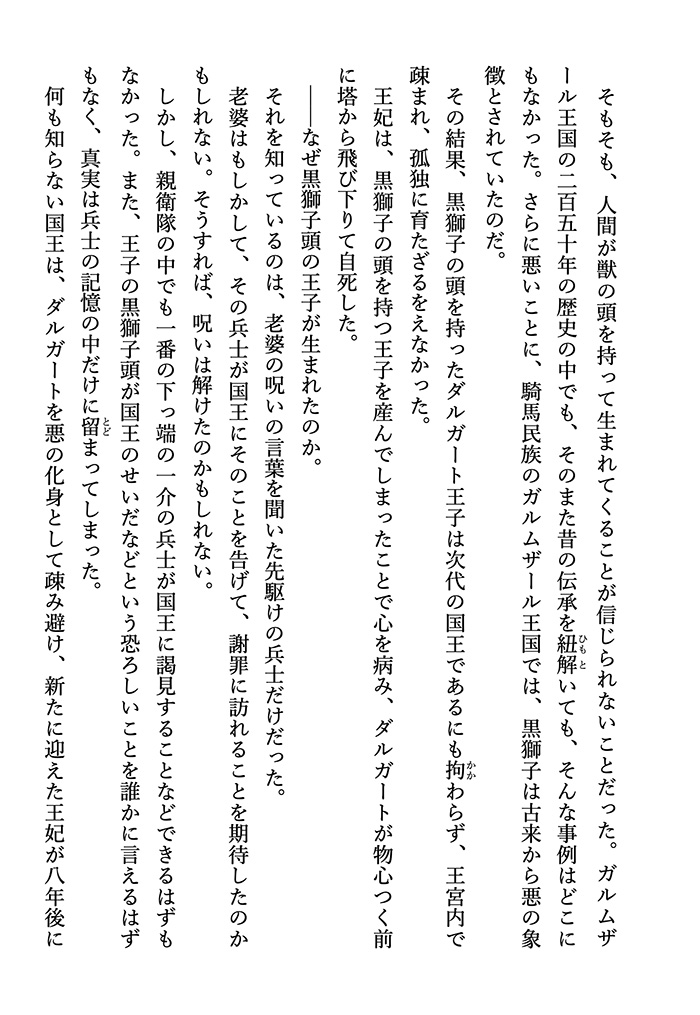 そもそも、人間が獣の頭を持って生まれてくることが信じられないことだった。ガルムザ
ール王国の二百五十年の歴史の中でも、そのまた昔の伝承を紐解いても、そんな事例はどこに
もなかった。さらに悪いことに、騎馬民族のガルムザール王国では、黒獅子は古来から悪の象
徴とされていたのだ。
　その結果、黒獅子の頭を持ったダルガート王子は次代の国王であるにも拘わらず、王宮内で
疎まれ、孤独に育たざるをえなかった。
　王妃は、黒獅子の頭を持つ王子を産んでしまったことで心を病み、ダルガートが物心つく前
に塔から飛び下りて自死した。
　――なぜ黒獅子頭の王子が生まれたのか。
　それを知っているのは、老婆の呪いの言葉を聞いた先駆けの兵士だけだった。
　老婆はもしかして、その兵士が国王にそのことを告げて、謝罪に訪れることを期待したのか
もしれない。そうすれば、呪いは解けたのかもしれない。
　しかし、親衛隊の中でも一番の下っ端の一介の兵士が国王に謁見することなどできるはずも
なかった。また、王子の黒獅子頭が国王のせいだなどという恐ろしいことを誰かに言えるはず
もなく、真実は兵士の記憶の中だけに留まってしまった。
　何も知らない国王は、ダルガートを悪の化身として疎み避け、新たに迎えた王妃が八年後に
ひもと
かか
とど